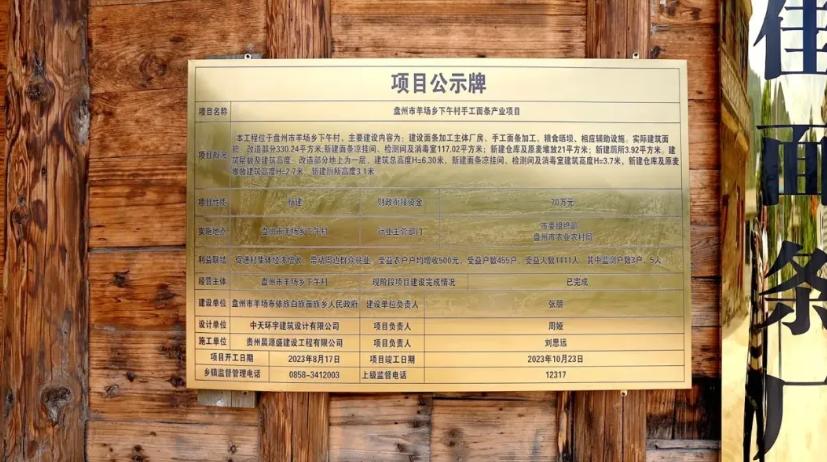 项目公示牌
项目名称 盘州市羊场乡下午村手工面条产业项目
本工程位于盘州市羊场乡下午村，主要建设内容为：建设面条加工主体厂房、手工面条加工、粮食晒坝、相应辅助设施。实际建筑面
项目概况 积：改造部分330.24平方米；新建面条凉挂间、检测间及消毒室117.02平方米；新建仓库及原麦堆放21平方米；新建厕所3.92平方米。建
筑层数及建筑高度：改造部分地上为一层，建筑总高度H=6.30米，新建面条凉挂间、检测间及消毒室建筑高度H=3.7米，新建仓库及原麦
堆放建筑高度H=2.7米，新建厕所高度3.1米
项目性质 财政衔接资金 70万元
实施地点 盘州市羊场乡下午村 行业主管部门 市委组织部
盘州市农业农村局
利益联结 促进村集体经济增长，带动周边群众就业，受益农户户均增收500元，受益户数455户，受益人数1411人，其中监测户数3户，5人
经营主体 盘州市羊场乡下午村 现阶段项目建设完成情况 已完成
建设单位 盘州市羊场布依族白族苗族乡人民政府 建设单位负责人 张朋
设计单位 中天环宇建筑设计有限公司 项目负责人 周娅
施工单位 贵州晨源盛建设工程有限公司 项目负责人 刘思远
项目开工日期 2023年8月17日 项目竣工日期 2023年10月23日
乡镇监督管理电话 0858-3412003 上级监督电话 12317
佳面条厂